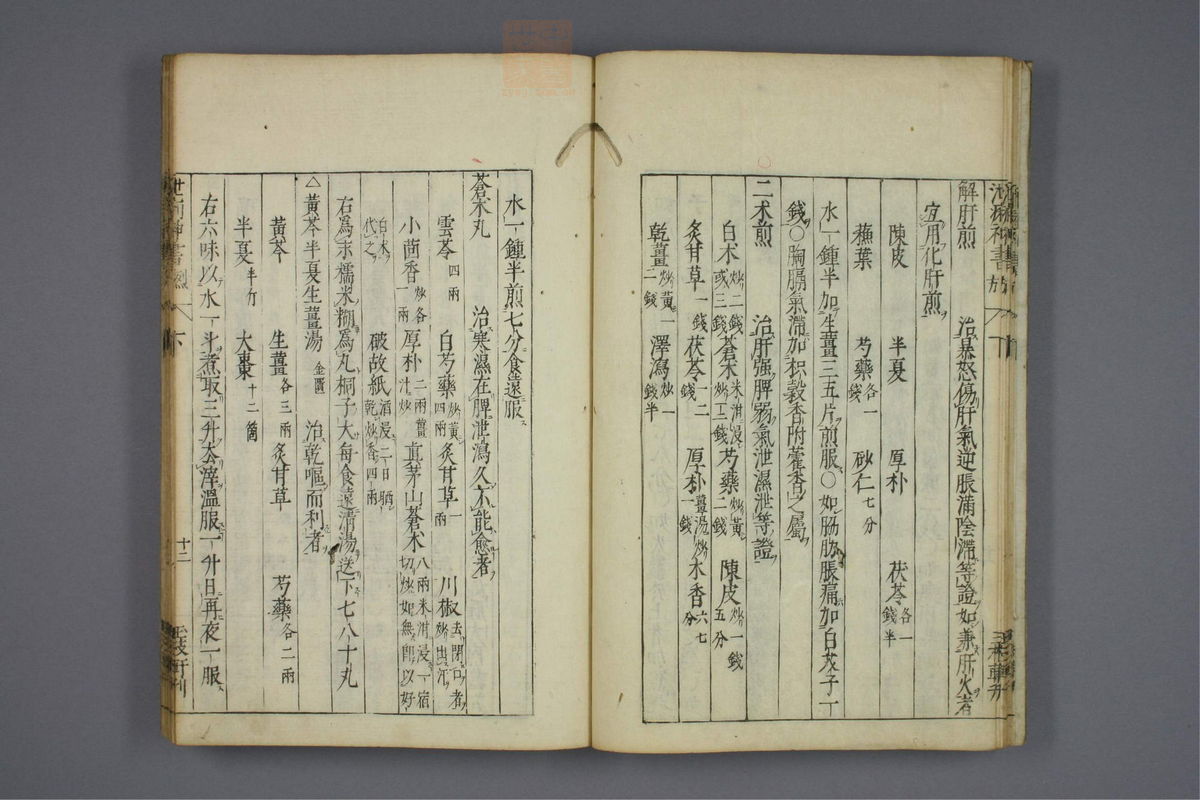 解肝煎 治暴怒傷肝氣逆脹滿陰滯等證如兼肝火者
宜用化肝煎
陳皮 半夏 厚朴 茯苓各一錢半
蘓葉 芍藥各一錢 砂仁七分
水一鍾半加生薑三五片煎服〇如脇肋脹痛加白芥子一
錢〇胸膈氣滯加枳殼香附藿香之屬
二术煎 治肝强脾弱氣泄濕泄等證
白术炒二錢或三錢 蒼术米泔浸炒一二錢 芍藥炒黃二錢 陳皮炒一錢五分
炙甘草一錢 茯苓一二錢 厚朴薑湯炒一錢 木香六七分
乾薑炒黃一二錢 澤瀉炒一錢半
水一鍾半煎七分食遠服
蒼术丸 治寒濕在脾泄瀉久不能愈者
雲苓四兩 白芍藥炒黃四兩 炙甘草一兩 川椒去閉口者炒出汗
小茴香炒各一兩 厚朴二兩薑汁炒 真茅山蒼术八兩米泔浸一宿切炒如無即以好
白术代之 破故紙酒浸二日晒乾炒香四兩
右爲末糯米糊爲丸桐子大每食遠清湯送下七八十丸
△黃芩半夏生薑湯 金匱 治乾嘔而利者
黃芩 生薑各三兩 炙甘草 芍藥各二兩
半夏半斤 大棗十二箇
右六味以水一斗煮取三升去滓溫服一升日再夜一服
十二